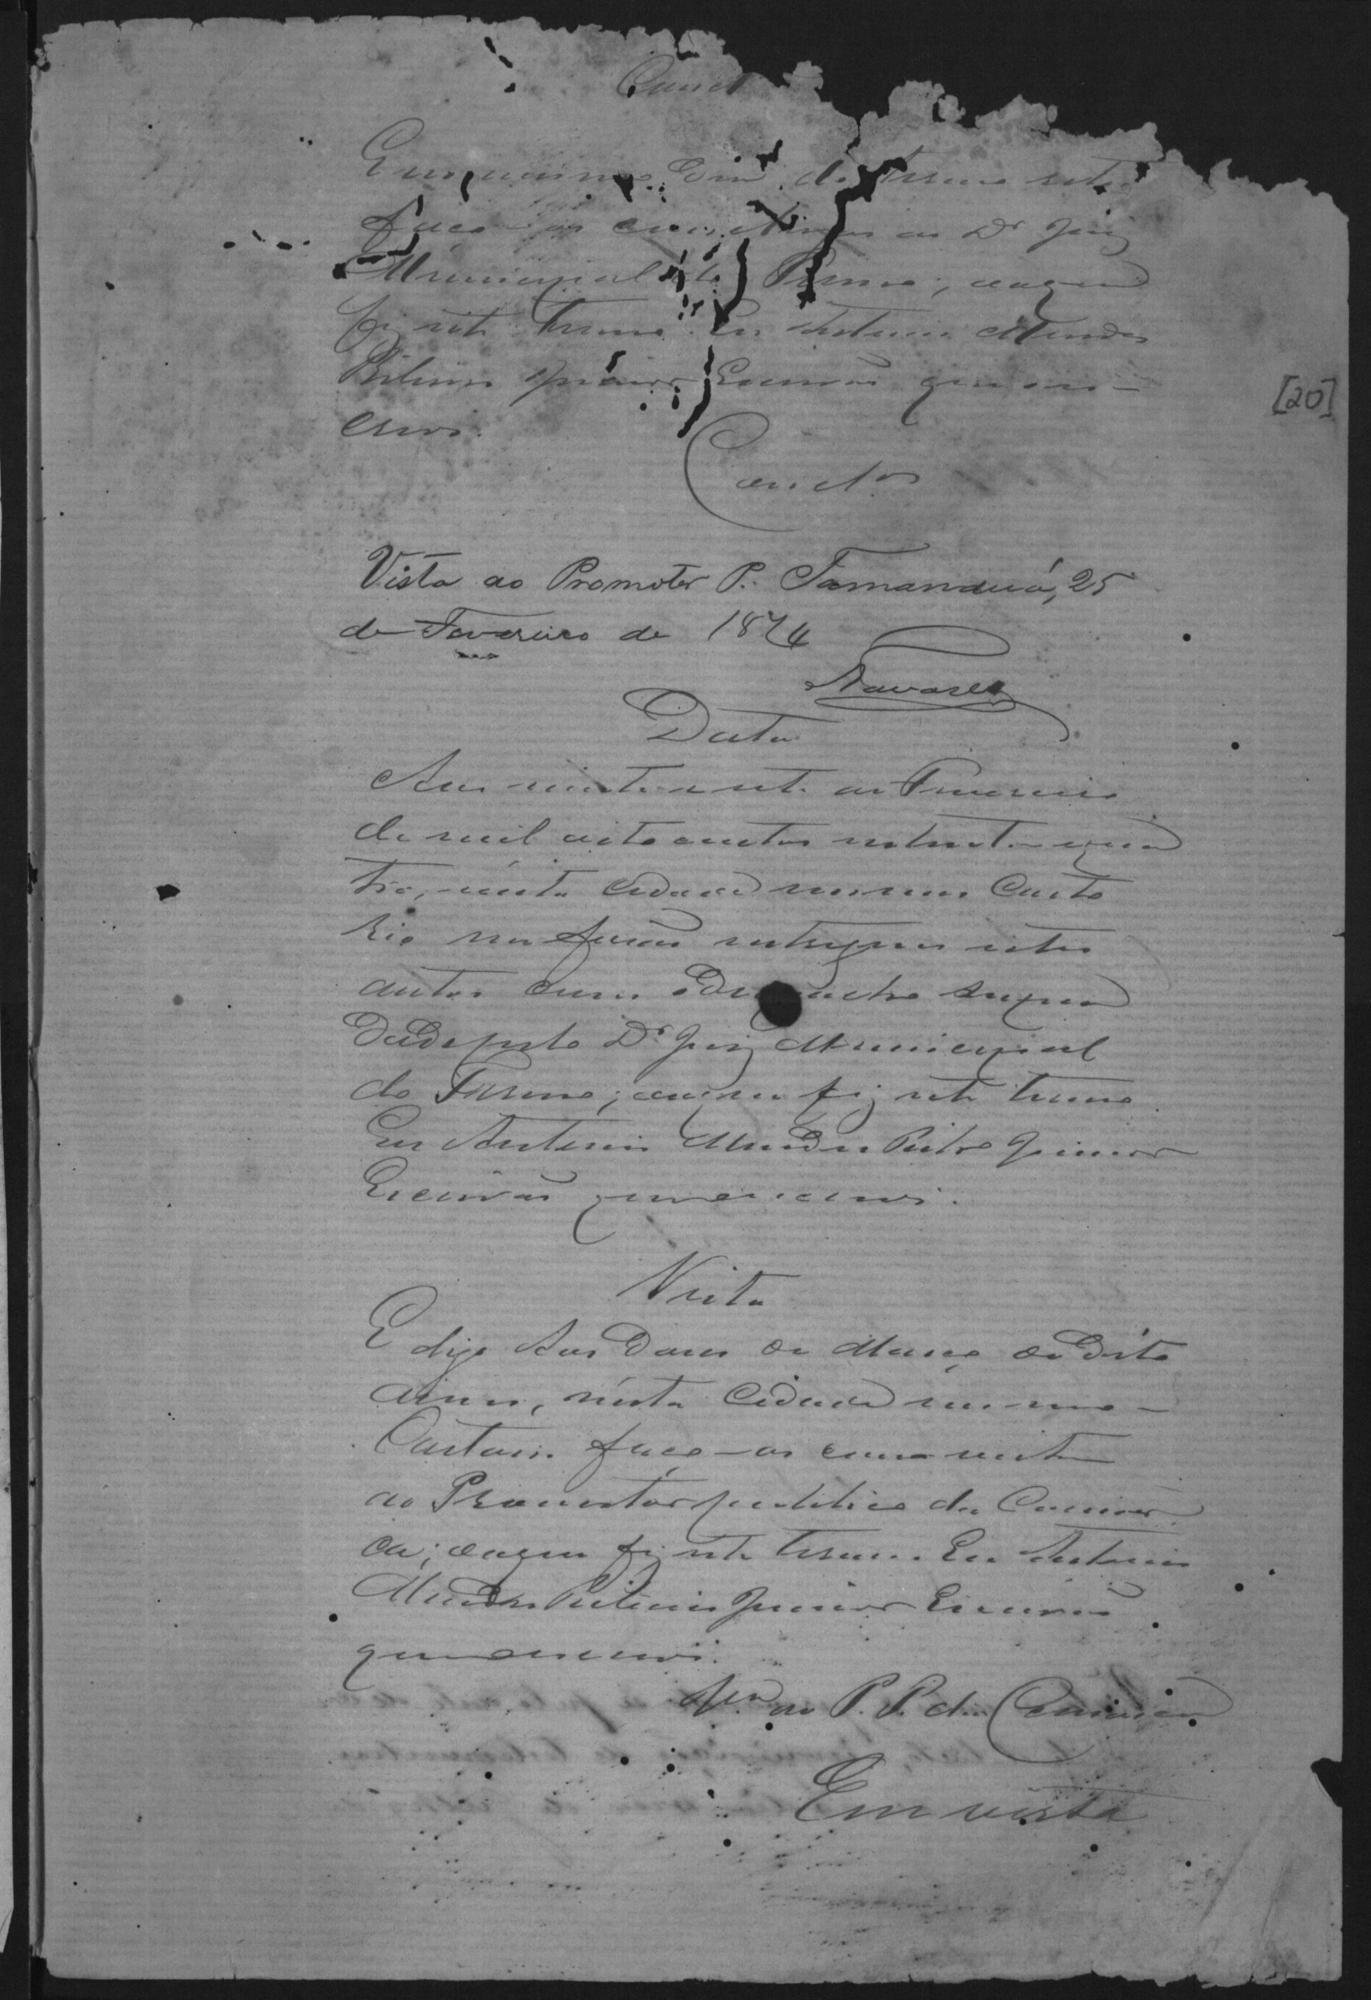 Concl
E no mesmo dia de
faço-os conclusos ao Dr Juiz
Municipal do Termo; do que
fiz este Termo. Eu Antonio Mendes
Ribeiro Junior Escrivão que o es-
crevi.
[20]
Concl.os
Vista ao Promoter P. Tamanduá, 25
de Fevereiro de 1874
Tavares
Data
Aos vinte e sete de Fevereiro
de mil oito centos setenta e qua
tro, nésta Cidade em meu Carto
rio me forão entregues estes
autos com o Despacho supra
Dado pelo Dr Juiz Municipal
do Termo; do que fiz este termo
Eu Antonio Mendes Ribro Junior
Escrivão que o escrevi.
Vista
E logo Aos Dous de Março do Dito
anno, nésta Cidade em meo
Cartorio faço-os com vista
ao Promotor publico da Comar
ca; do que fiz este termo. Eu Antonio
Mendes Ribeiro Junior Escrivão
que o escrevi.
ao P. P. da Comarca
Em vista